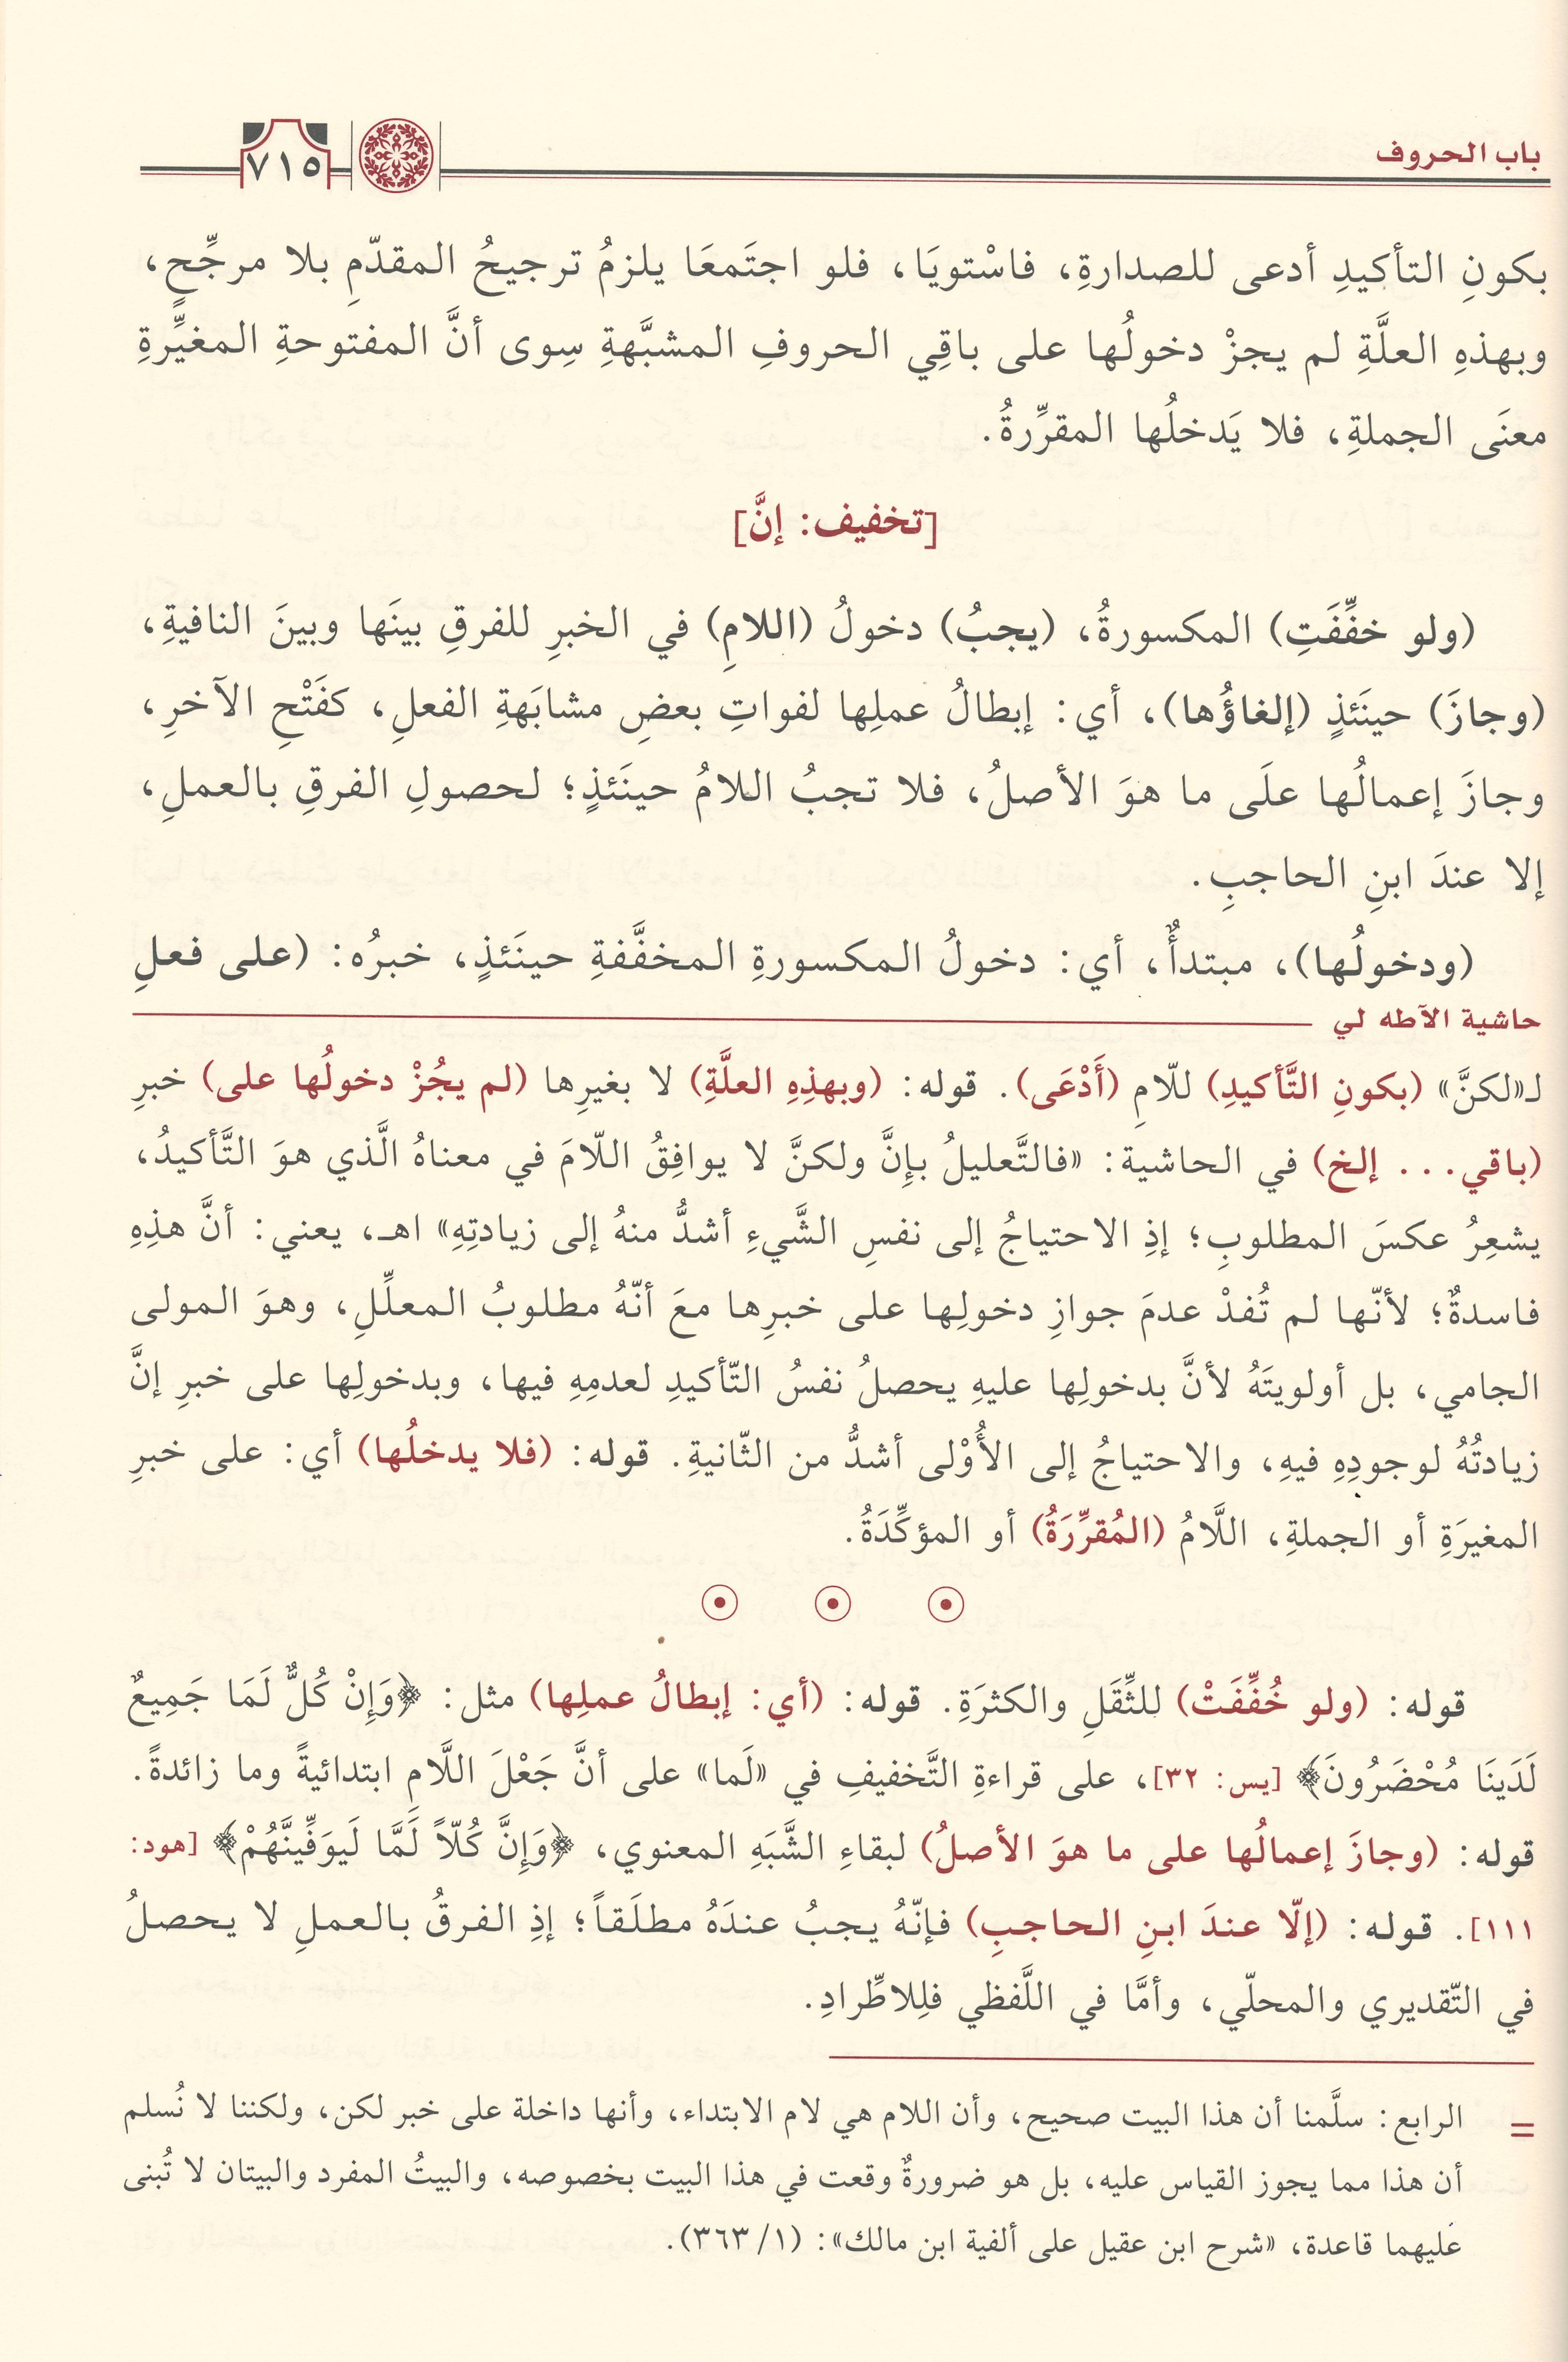 باب الحروف
٧١٥
بكونِ التأكيدِ أدعى للصدارةِ، فاسْتويَا، فلو اجتَمعَا يلزمُ ترجيحُ المقدّمِ بلا مرجِّحٍ،
وبهذهِ العلَّةِ لم يجزْ دخولُها على باقِي الحروفِ المشبَّهةِ سِوى أنَّ المفتوحةِ المغيِّرةِ
معنَى الجملةِ، فلا يَدخلُها المقرِّرةُ.
[تخفيف: إنَّ]
(ولو خفِّفَتِ) المكسورةُ، (يجبُ) دخولُ (اللامِ) في الخبرِ للفرقِ بينَها وبينَ النافيةِ،
(وجازَ) حينَئذٍ (إلغاؤُها)، أي: إبطالُ عملِها لفواتِ بعضِ مشابَهةِ الفعلِ، كفَتْحِ الآخرِ،
وجازَ إعمالُها علَى ما هوَ الأصلُ، فلا تجبُ اللامُ حينَئذٍ؛ لحصولِ الفرقِ بالعملِ،
إلا عندَ ابنِ الحاجبِ.
(ودخولُها)، مبتدأٌ، أي: دخولُ المكسورةِ المخفَّفةِ حينَئذٍ، خبرُه: (على فعلِ
حاشية الآطه لي
لـ«لكنَّ» (بكونِ التَّأكيدِ) للّامِ (أَدْعَى). قوله: (وبهذِهِ العلَّةِ) لا بغيرِها (لم يجُزْ دخولُها على) خبرِ
(باقي... إلخ) في الحاشية: «فالتَّعليلُ بإِنَّ ولكنَّ لا يوافِقُ اللّامَ في معناهُ الَّذي هوَ التَّأكيدُ،
يشعِرُ عكسَ المطلوبِ؛ إذِ الاحتياجُ إلى نفسِ الشَّيءِ أشدُّ منهُ إلى زيادتِهِ» اهـ، يعني: أنَّ هذِهِ
فاسدةٌ؛ لأنّها لم تُفدْ عدمَ جوازِ دخولِها على خبرِها معَ أنّهُ مطلوبُ المعلِّلِ، وهوَ المولى
الجامي، بل أولويتَهُ لأنَّ بدخولِها عليهِ يحصلُ نفسُ التّأكيدِ لعدمِهِ فيها، وبدخولِها على خبرِ إنَّ
زيادتُهُ لوجودِهِ فيهِ، والاحتياجُ إلى الأُوْلى أشدُّ من الثّانيةِ. قوله: (فلا يدخلُها) أي: على خبرِ
المغيرَةِ أو الجملةِ، اللَّامُ (المُقرِّرَةُ) أو المؤكِّدَةُ.
قوله: (ولو خُفِّفَتْ) للثِّقَلِ والكثرَةِ. قوله: (أي: إبطالُ عملِها) مثل: ﴿وَإِنْ كُلٌّ لَمَا جَمِيعٌ
لَدَينَا مُحْضَرُونَ﴾ [يس: ٣٢]، على قراءةِ التَّخفيفِ في «لَما» على أنَّ جَعْلَ اللَّامِ ابتدائيةً وما زائدةً.
قوله: (وجازَ إعمالُها على ما هوَ الأصلُ) لبقاءِ الشَّبَهِ المعنوي، ﴿وَإِنَّ كُلّاً لَمَّا لَيوَفِّينَّهُمْ﴾ [هود:
١١١]. قوله: (إلّا عندَ ابنِ الحاجبِ) فإنّهُ يجبُ عندَهُ مطلَقاً؛ إذِ الفرقُ بالعملِ لا يحصلُ
في التّقديري والمحلّي، وأمَّا في اللَّفظي فلِلاطِّرادِ.
= الرابع: سلَّمنا أن هذا البيت صحيح، وأن اللام هي لام الابتداء، وأنها داخلة على خبر لكن، ولكننا لا نُسلم
أن هذا مما يجوز القياس عليه، بل هو ضرورةٌ وقعت في هذا البيت بخصوصه، والبيتُ المفرد والبيتان لا تُبنى
عليهما قاعدة، «شرح ابن عقيل على ألفية ابن مالك»: (١/ ٣٦٣).